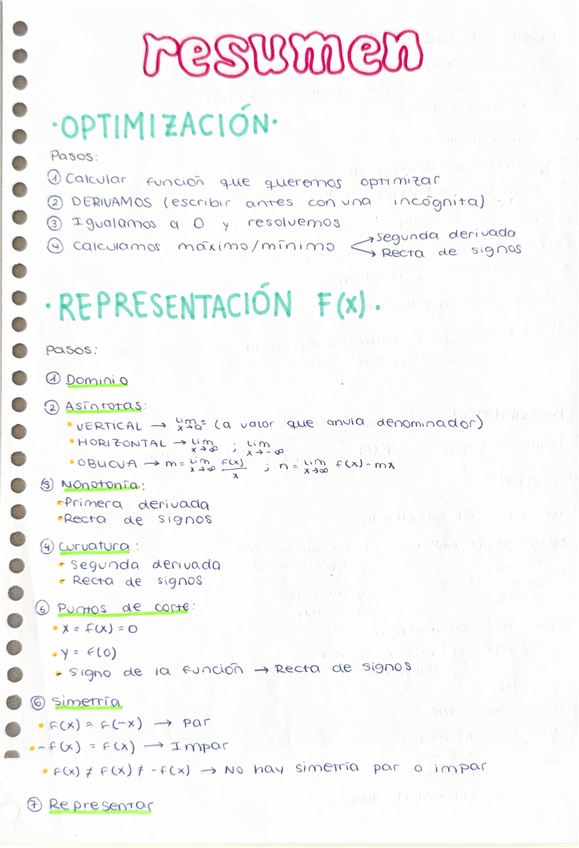 resumen
·OPTIMIZACIÓN·
Pasos:
① Calcular función que queremos optimizar
② DERIVAMOS (escribir antes con una incógnita)
③ Igualamos a 0 y resolvemos
④ Calculamos máximo/mínimo → Segunda derivada
→ Recta de signos
·REPRESENTACIÓN F(x).
Pasos:
① Dominio
② Asíntotas:
• VERTICAL → lim x→a± (a valor que anula denominador)
• HORIZONTAL → lim x→∞ ; lim x→-∞
• OBLICUA → m = lim x→∞ f(x)/x ; n = lim x→∞ f(x) - mx
③ Monotonía:
• Primera derivada
• Recta de signos
④ Curvatura:
• Segunda derivada
• Recta de signos
⑤ Puntos de corte:
• x = f(x) = 0
• y = f(0)
• Signo de la función → Recta de signos
⑥ Simetría
• f(x) = f(-x) → par
• -f(x) = f(x) → Impar
• f(x) ≠ f(x) ≠ -f(x) → No hay simetría par o impar
⑦ Representar